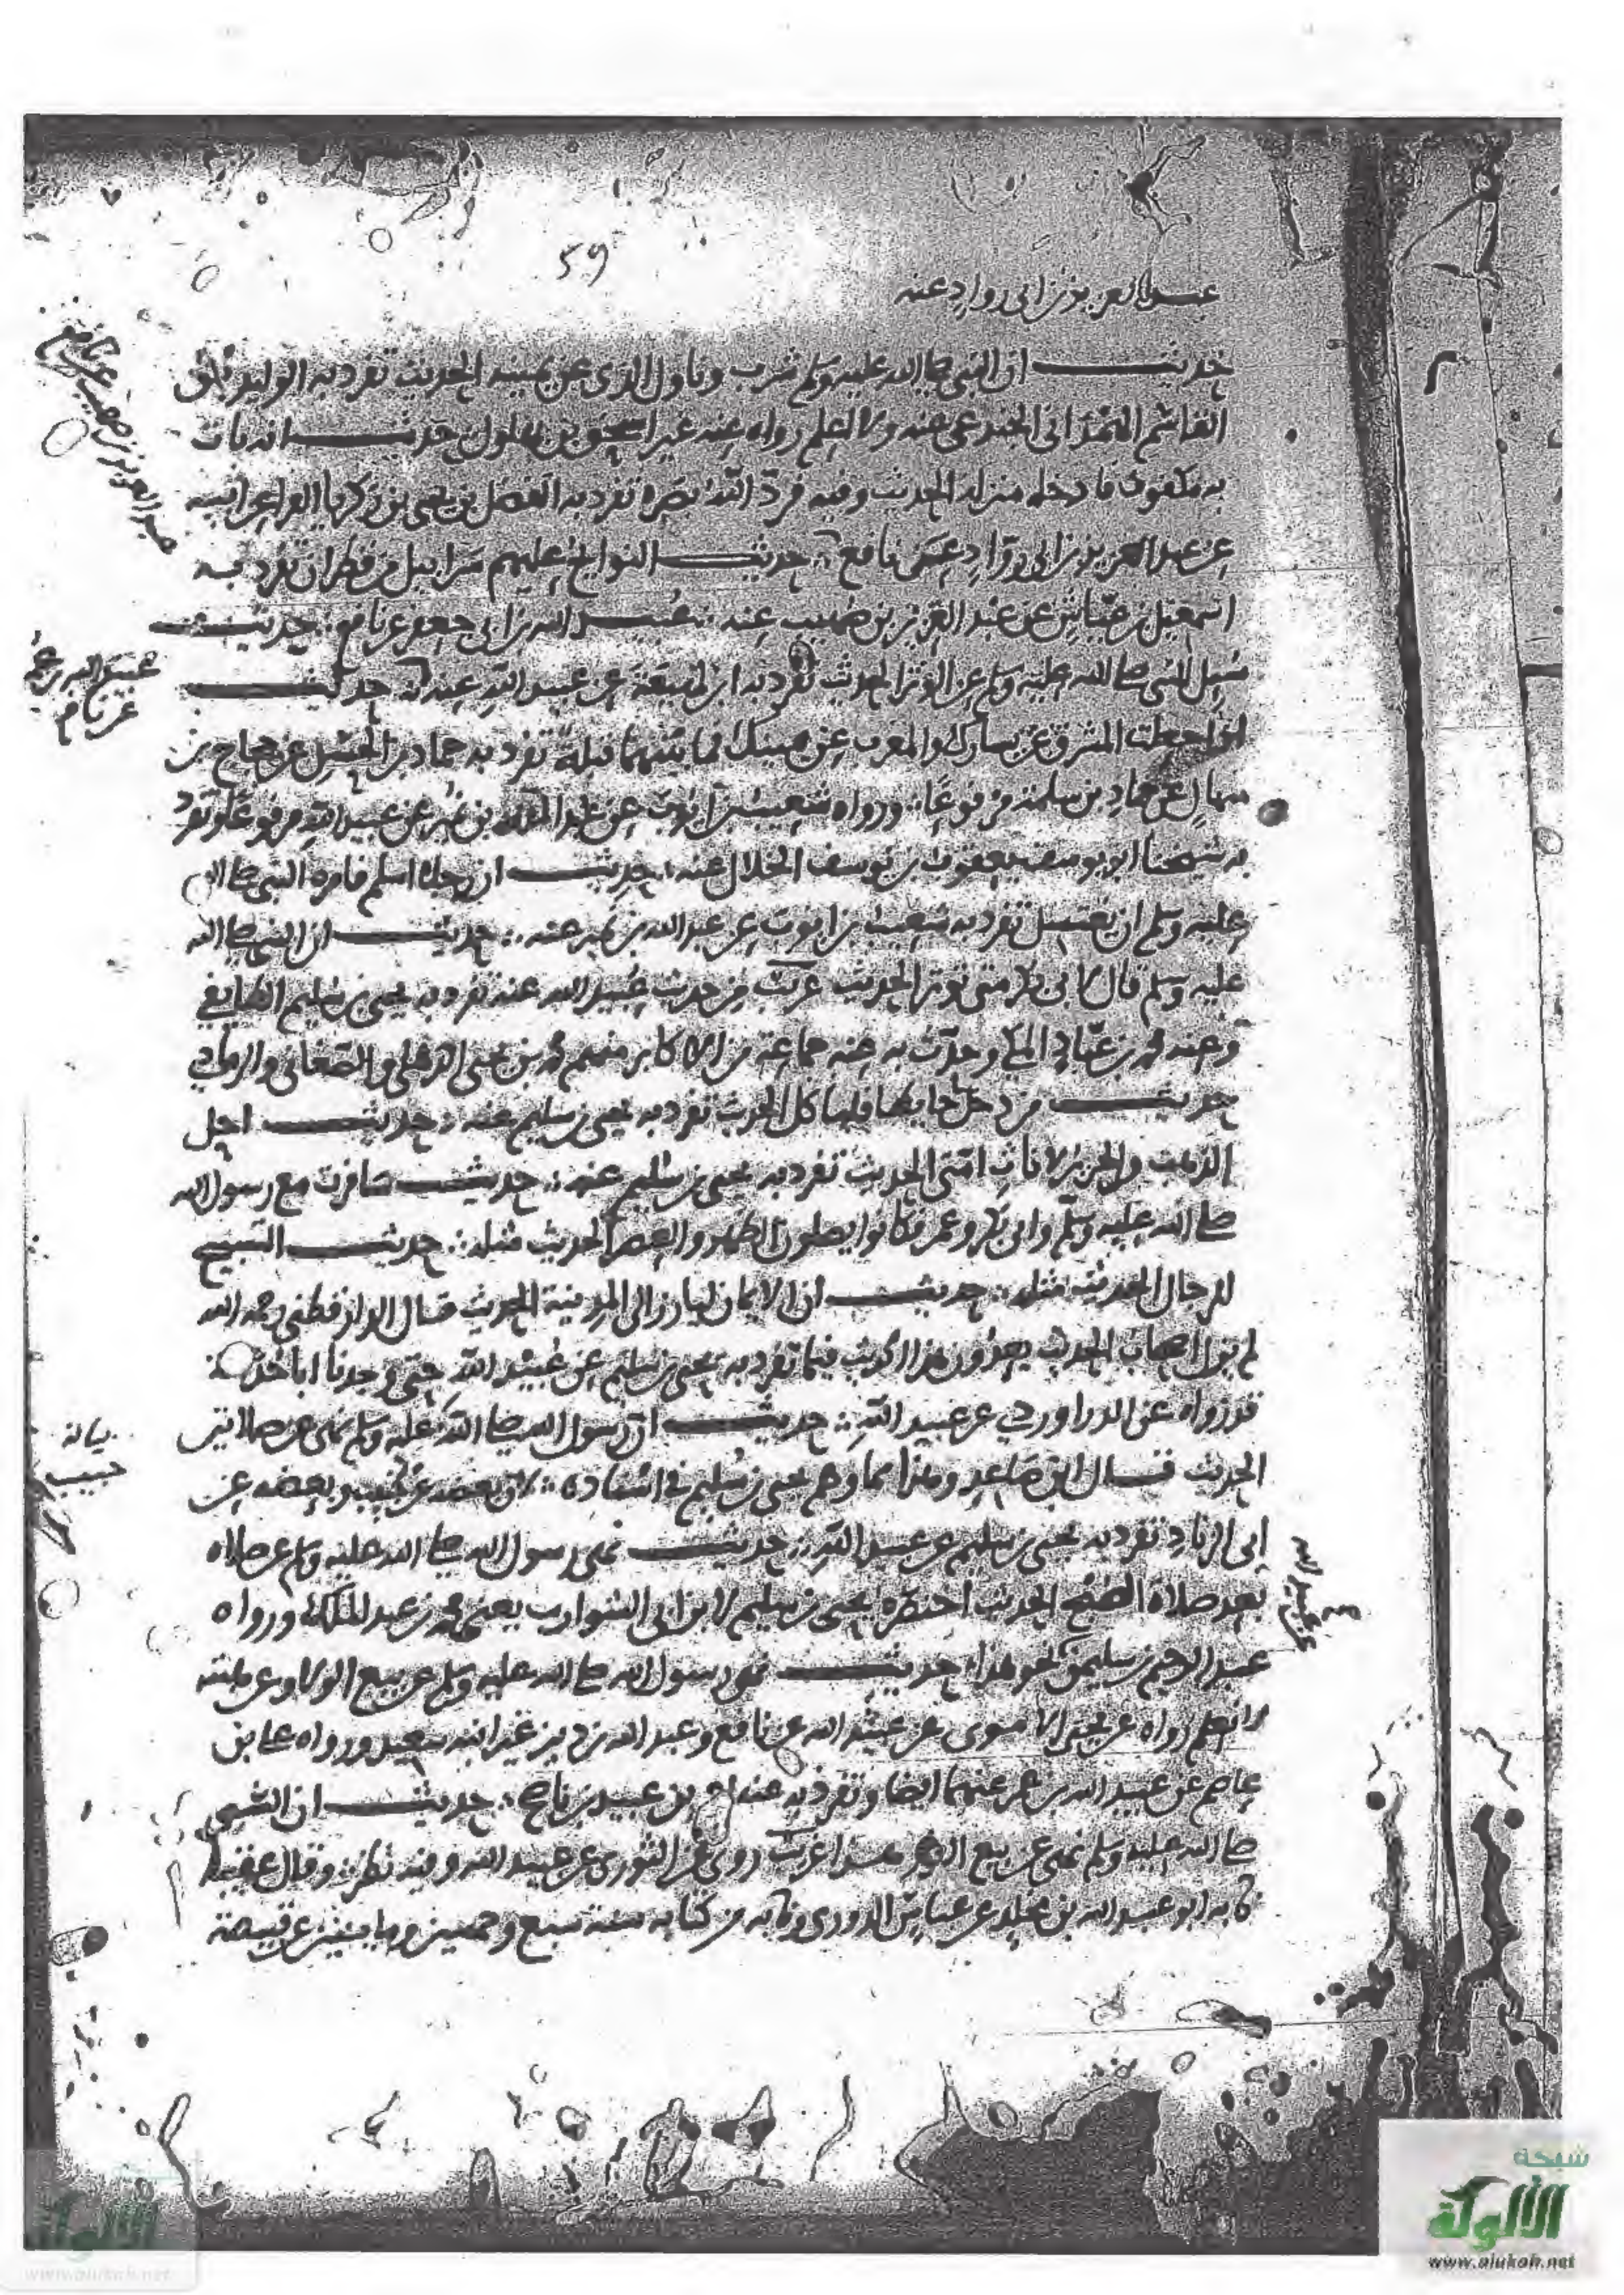 59
عبد العزيز بن ابي رواد عنه
حديث ان النبي صلى الله عليه وسلم شرب وناول الذي عن يمينه الحديث تفرد به الوليد بن
القاسم الهمداني عنه ولا اعلم رواه عنه غير اسحق بن بهلول حديث انه بات
به مكفوف فادخله منزله الحديث وفيه فرد الله بصره تفرد به الفضل بن يحيى بن زكريا
عن عبد العزيز بن ابي رواد عن نافع حديث النوايح عليهم سرابيل من قطران تفرد به
اسمعيل بن عياش عن عبد العزيز بن صهيب عنه عبيد الله بن ابي جعفر عن نافع حديث
سئل النبي صلى الله عليه وسلم عن الوتر الحديث تفرد به ابن لهيعة عن عبيد الله عنه حديث
اذا جعلت المشرق عن يسارك والمغرب عن يمينك فما بينهما قبلة تفرد به حماد بن الحسن عن حجاج بن
منهال عن حماد بن سلمة مرفوعا ورواه شعيب بن ايوب عن عبد الله بن نمير عن عبيد الله مرفوعا وتفرد
به شيخنا ابو يوسف يعقوب بن يوسف الخلال عنه حديث ان رجلا اسلم فامره النبي صلى الله
عليه وسلم ان يغتسل تفرد به شعيب بن ايوب عن عبد الله بن نمير عنه حديث ان النبي صلى الله
عليه وسلم قال لابي بكر متى توتر الحديث غريب من حديث عبيد الله عنه تفرد به يحيى بن سليم الطايفي
وعنه محمد بن عباد المكي وحدث به عنه جماعة من الاكابر منهم محمد بن يحيى الذهلي والصغاني والرمادي
حديث من دخل حايطا فلياكل الحديث تفرد به يحيى بن سليم عنه حديث احل
الذهب والحرير لاناث امتي الحديث تفرد به يحيى بن سليم عنه حديث سافرت مع رسول الله
صلى الله عليه وسلم وابي بكر وعمر فكانوا يصلون الظهر والعصر الحديث مثله حديث التسبيح
للرجال الحديث مثله حديث ان الايمان ليارز الى المدينة الحديث قال الدارقطني رحمه الله
لم يزل اصحاب الحديث يعدون هذا الحديث فيما تفرد به يحيى بن سليم عن عبيد الله حتى وجدنا ابا
قد رواه عن الدراوردي عن عبيد الله حديث ان رسول الله صلى الله عليه وسلم نهى عن صلاتين
الحديث قال ابن صاعد وهذا مما وهم يحيى بن سليم في اسناده لان بعضه عن خبيب وبعضه عن
ابي الزناد تفرد به يحيى بن سليم عن عبيد الله حديث نهى رسول الله صلى الله عليه وسلم عن صلاة
بعد صلاة الصبح الحديث اختصره يحيى بن سليم لابن ابي الشوارب يعني محمد بن عبد الملك ورواه
عبد الرحيم بن سليمن نحو هذا حديث نهى رسول الله صلى الله عليه وسلم عن بيع الولا وعن هبته
لا نعلم رواه عن يحيى الاموي عن عبيد الله عن نافع وعبد الله بن دينر غير ابنه سعيد ورواه علي بن
عاصم عن عبيد الله بن عمر عنهما ايضا وتفرد به عنه احمد بن عبيد بن ناصح حديث ان النبي
صلى الله عليه وسلم نهى عن بيع الغرر هذا غريب روي عن الثوري عن عبيد الله وفيه نظر وقال
ابو عبد الله بن مخلد عن عباس الدوري من كتابه سنة سبع وخمسين ومايتين عن قبيصة
عبد العزيز بن صهيب عن نافع
عن نافع
خبيب
عن عبيد الله
شبكة
الألوكة
www.alukah.net